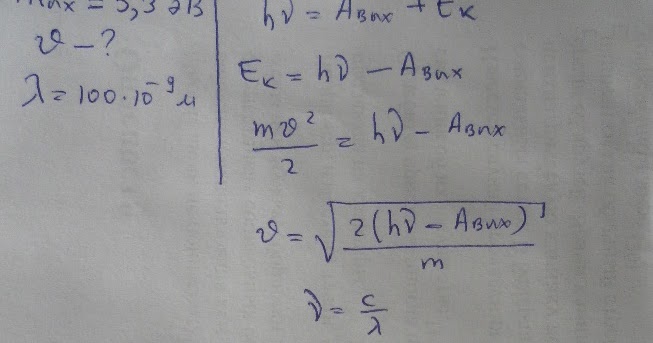 = 5,3 эВ
υ - ?
λ = 100·10⁻⁹ м
hν = Aвих + Eк
Eк = hν - Aвих
mυ²/2 = hν - Aвих
υ = √(2(hν - Aвих)/m)
ν = c/λ